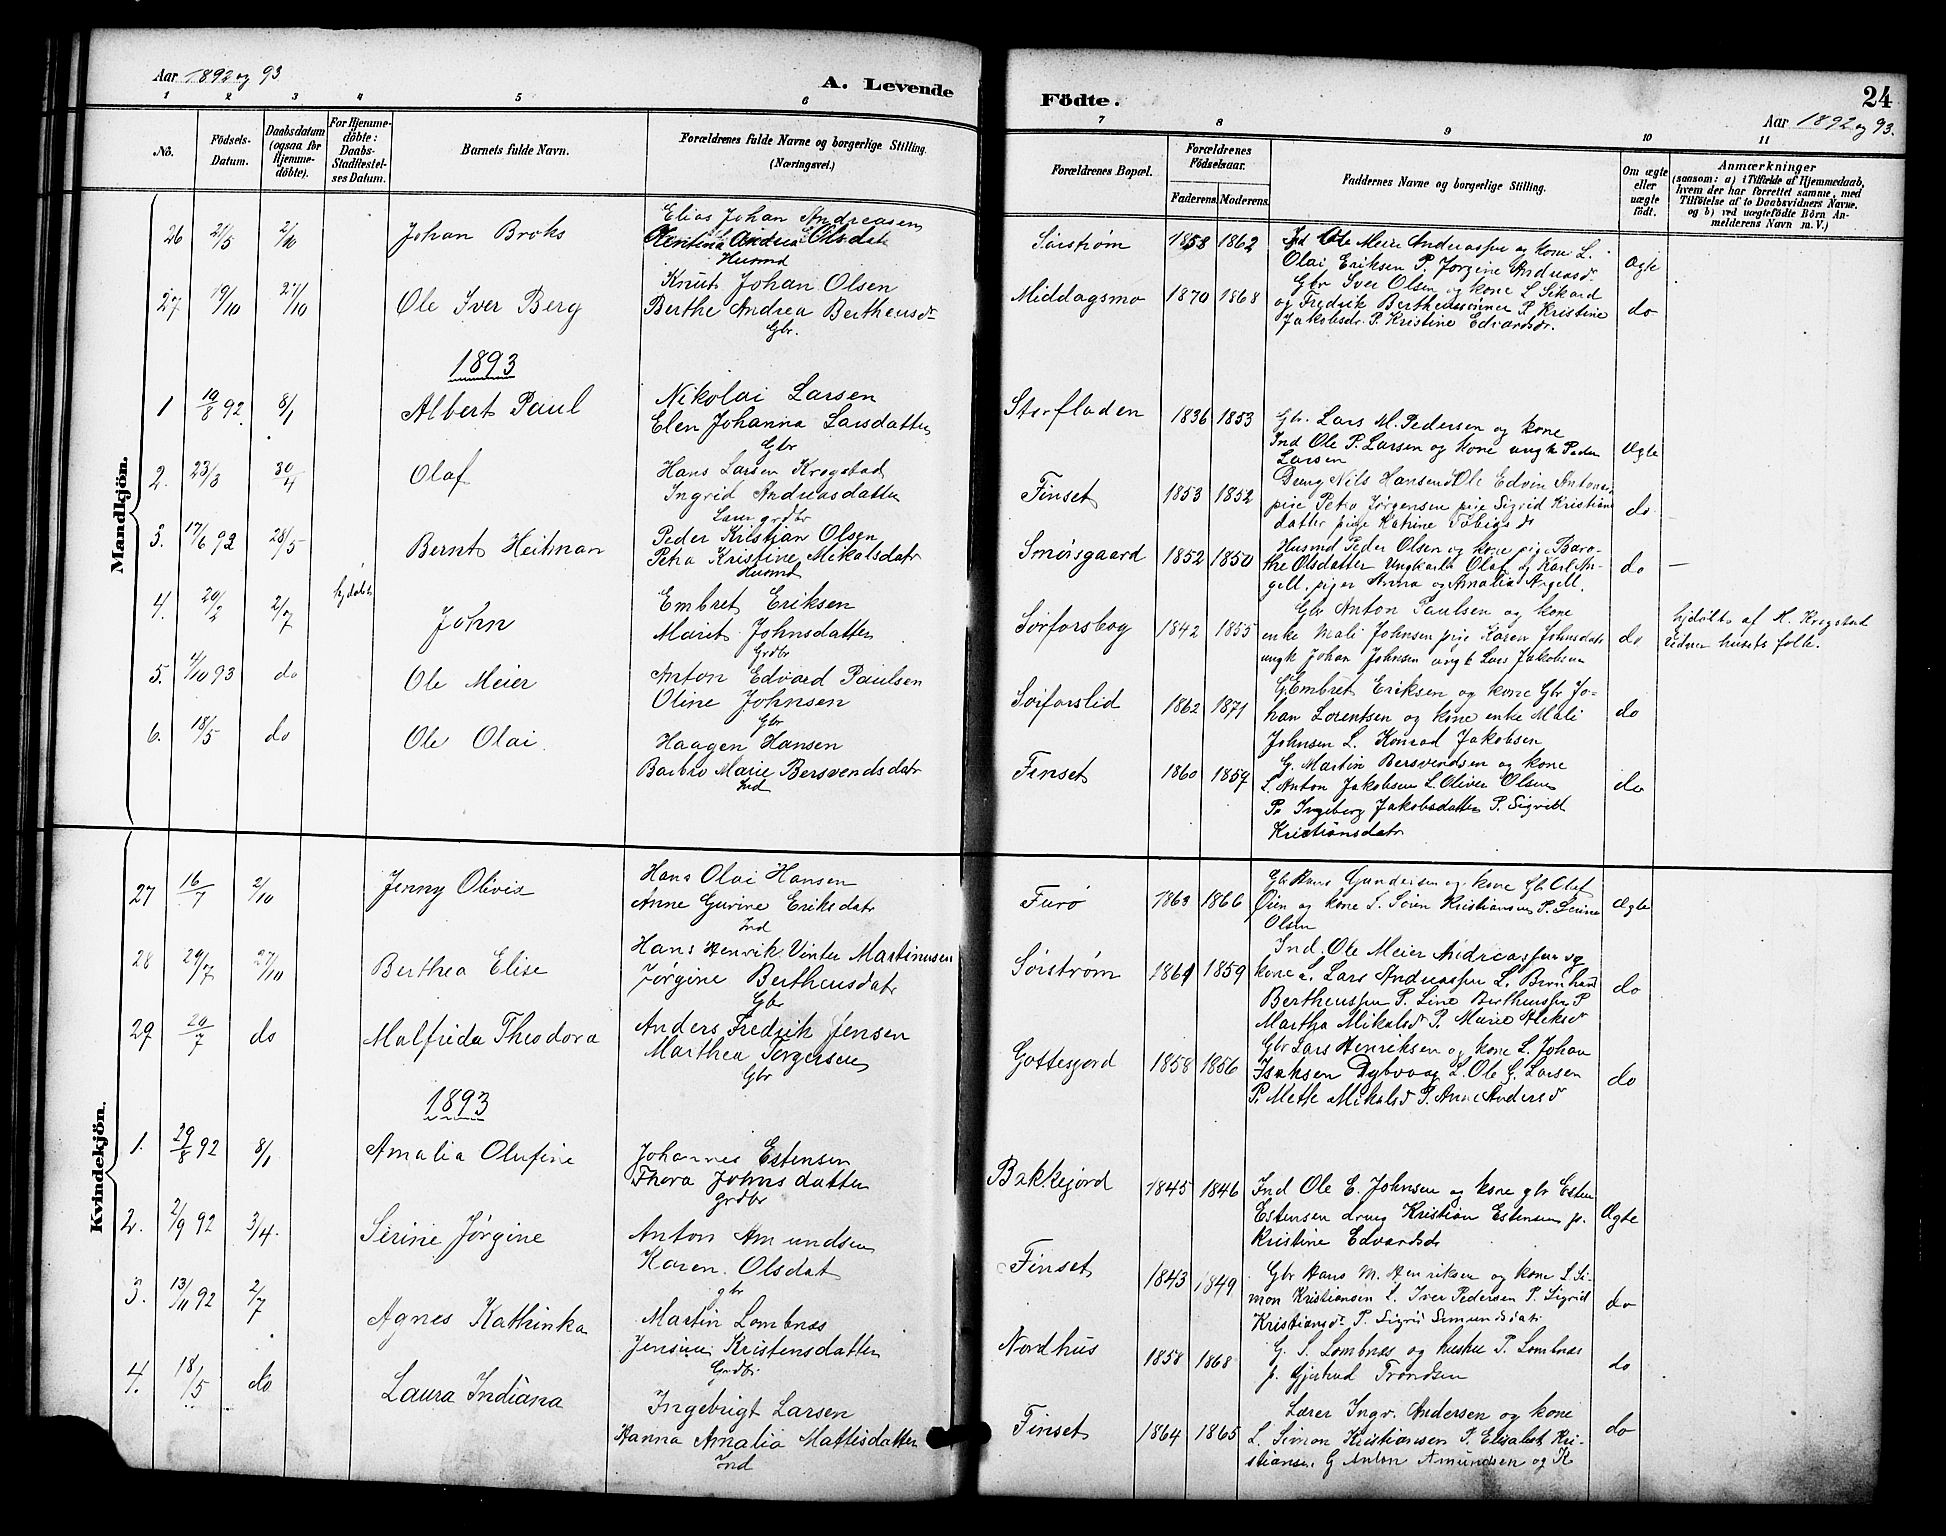 Aar 1892 og 93
A. Levende
Födte.
24
Aar 1892 og 93.
1 2 3 4 5 6 7 8 9 10 11
No.
Födsels-Datum.
Daabsdatum (ogsaa for Hjemme-döbte).
For Hjemme-döbte: Daabs-Stadfæstelses Datum.
Barnets fulde Navn.
Forældrenes fulde Navne og borgerlige Stilling. (Næringsvei.)
Forældrenes Bopæl.
Forældrenes Födselsaar.
Faderens. Moderens.
Faddernes Navne og borgerlige Stilling.
Om ægte eller uægte födt.
Anmærkninger
(saasom: a) i Tilfælde af Hjemmedaab, hvem der har forrettet samme, med Tilföielse af to Daabsvidners Navne, og b) ved uægtefödte Börn Anmelderens Navn m. V.)
Mandkjön.
26 21/5 2/10 Johan Brohs
Elias Johan Andreasen
Andrea Olsdatr
Husmd
Sørstrøm 1858 1862
Ind Ole Meier Andreassen og kone L.
Olai Eriksen P. Jørgine Andreasdr
Ægte
27 19/10 27/10 Ole Iver Berg
Knut Johan Olsen
Berthe Andrea Bertheusdr
Gbr.
Middagsmo 1870 1868
Gbr Iver Olsen og kone L. Sikard
og Fredrik Bertheussønner P. Kristine
Jakobsdr. P. Kristine Edvardsdr.
do
1893
1 19/8 92 8/1 Albert Paul
Nikolai Larsen
Elen Johanna Larsdatter
Gbr
Storfladen 1836 1853
Gbr. Lars M. Pedersen og kone
Ind Ole P. Larsen og kone ungk Peder
Larsen
Ægte
2. 23/3 30/4 Olaf
Hans Larsen Krogstad
Ingrid Andreasdatter
grdbr
Finset 1853 1852
Nils Hansen Ole Edvin
pige Petra Jørgensen pige Sigrid Kristians
datter pige Katrine Tobiasdr
do
3. 17/6 92 28/5 Bernt Heitman
Peder Kristian Olsen
Petra Kristine Mikalsdatr
Husmd
Smørsgaard 1852 1850
Husmd Peder Olsen og kone pige Bere-
the Olsdatter Ungkarle Olaf og Karl An-
gell. piger Anna og Amalia Angell.
do
4. 20/2 2/7 hjdøbt John
Embret Eriksen
Marit Johnsdatter
Grdbr
Sørforsbog 1842 1855
Gbr Anton Paulsen og kone
enke Mali Johnsen pige Karen Johnsdatr
ungk Johan Johnsen ungk Lars Jakobsen
do
hjdøbt af H. Krogstad
vidner husets folk.
5. 4/10 93 do Ole Meier
Anton Edvard Paulsen
Oline Johnsen
Gbr
Sørforslid 1862 1871
G. Embret Eriksen og kone Gbr Jo-
han Lorentsen og kone enke Mali
Johnsen L. Konrad Jakobsen
do
6. 18/5 do Ole Olai
Haagen Hansen
Barbro Marie Bersvendsdatr
Ind
Finset 1860 1859
G. Martin Bersvendsen og kone
L. Anton Jakobsen L. Oliver Olsen
P. Ingeborg Jakobsdatter P. Sigrid
Kristiansdatr
do
Kvindekjön.
27 16/7 2/10 Jenny Olivis
Hans Olai Hansen
Anne Gurine Eriksdatr
Ind
Furø 1863 1866
Gbr Hans Gundersen og kone Gbr Olaf
Øien og kone L. Søren Kristiansen P. Serine
Olsen
Ægte
28 29/7 27/10 Berthea Elise
Hans Henrik Vinter Martinusen
Jørgine Bertheusdatr
Gbr
Sørstrøm 1861 1859
Ind. Ole Meier Andreassen og
kone L. Lars Andreassen L. Bernhard
Bertheussen P. Line Bertheussen P
Martha Mikalsdr P. Marie Aleksdr
do
29 20/7 do Malfrida Theodora
Anders Fredrik Jensen
Marthea Torgersen
Gbr
Gottesgord 1858 1856
Gbr Lars Henriksen og kone L. Johan
Isaksen Dybvaag L. Ole G. Larsen
P. Mette Mikalsdr P. Anne Andersdr
do
1893
1. 29/8 92 8/1 Amalia Olufine
Johannes Estensen
Thora Johnsdatter
grdbr
Bakkejord 1845 1846
Ind Ole E. Johnsen og kone gbr Esten
Estensen dreng Kristian Estensen p.
Kristine Edvardsdr
Ægte
2. 2/9 92 3/4. Serine Jørgine
Anton Amundsen
Karen Olsdat
gbr
Finset 1843 1849
Gbr Hans M. Henriksen og kone L. Si-
mon Kristiansen L. Iver Pedersen P. Sigrid
Kristiansdr P. Sigrid Simundsdatr
do
3. 13/11 92 2/7 Agnes Kathinka
Martin Lombnæs
Jensine Kristensdatter
Grdbr
Nordhus 1858 1868
G. S. Lombnæs og hustru P. Lombnæs
p. Gjertrud Trondsen
do
4. 18/5 do Laura Indiana
Ingebrigt Larsen
Hanna Amalia Mattisdatter
Ind
Finset 1864 1865
Lærer Ingv. Andersen og kone
L. Simon Kristiansen P. Elisabet Kri-
stiansen G Anton Amundsen og K
do